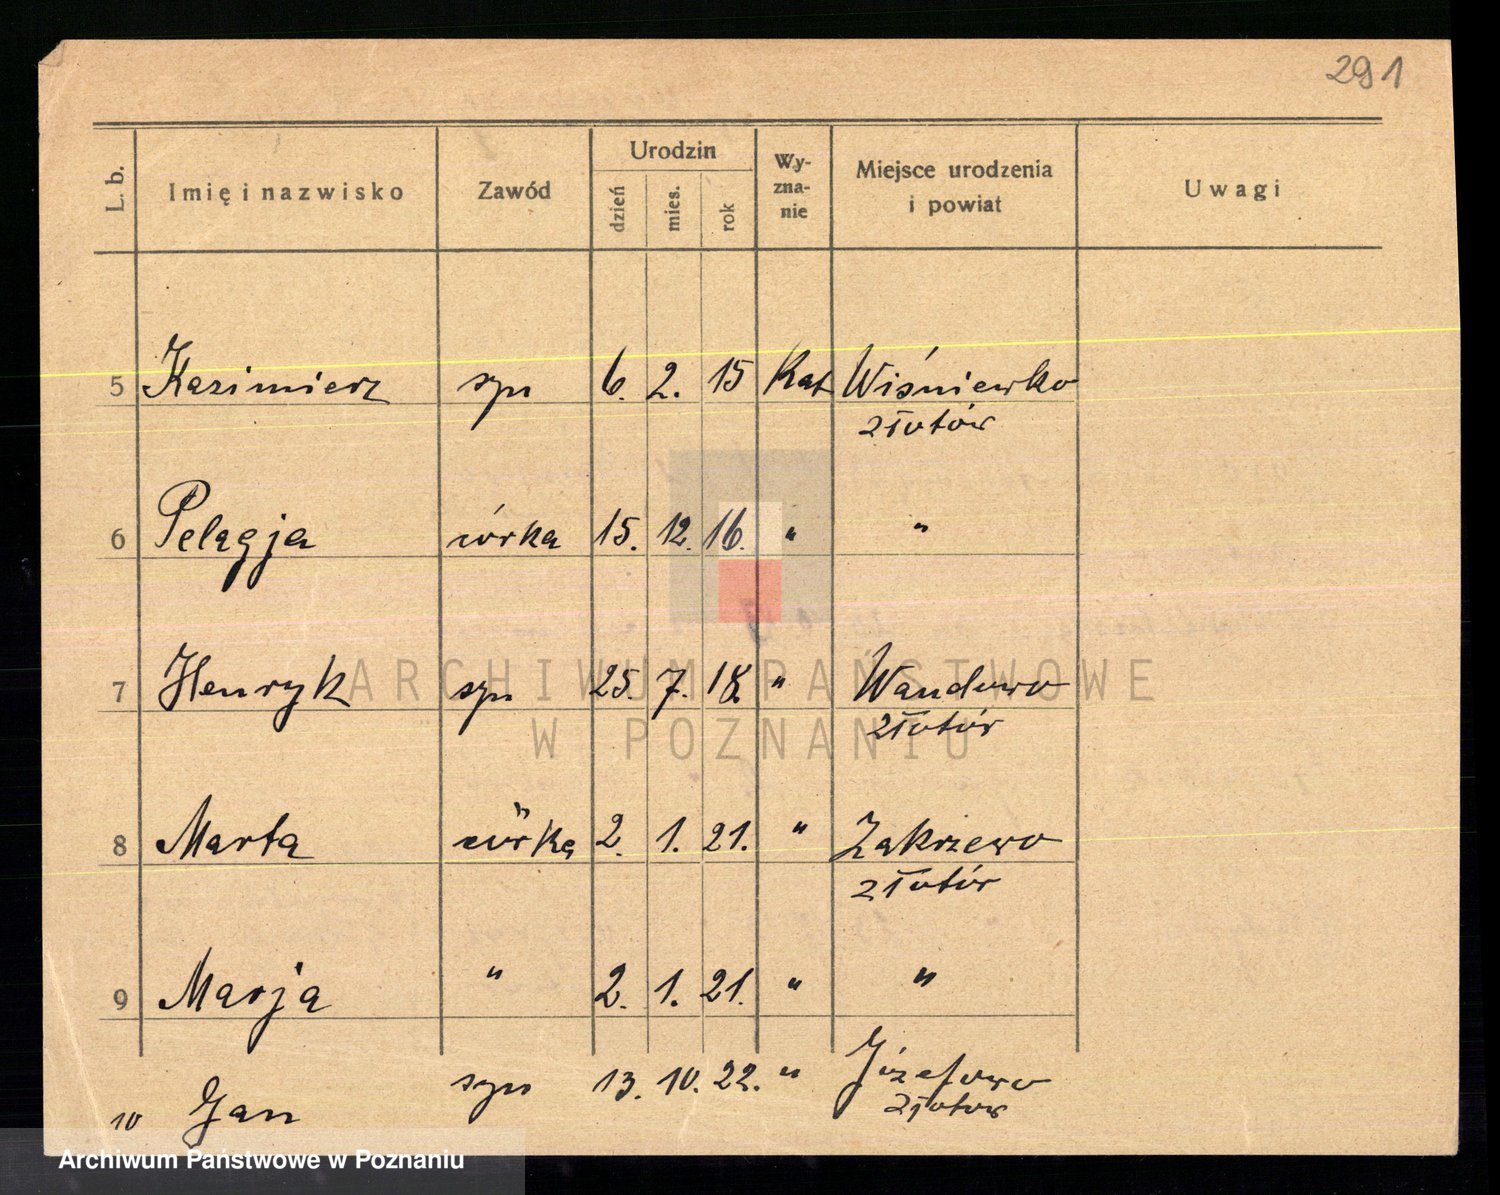 291
L. b. Imię i nazwisko Zawód Urodzin dzień mies. rok Wy-zna-nie Miejsce urodzenia i powiat Uwagi
5 Kazimierz syn 6. 2. 15 Kat Wiśniewko
złotów
6 Pelagja córka 15. 12. 16. " "
7 Henryk syn 25. 7. 18. " Wandowo
złotów
8 Marta córka 2. 1. 21. " Zakrzewo
złotów
9 Marja " 2. 1. 21. " "
10 Jan syn 13. 10. 22. " Józefowo
złotow
ARCHIWUM PAŃSTWOWE
W POZNANIU
Archiwum Państwowe w Poznaniu